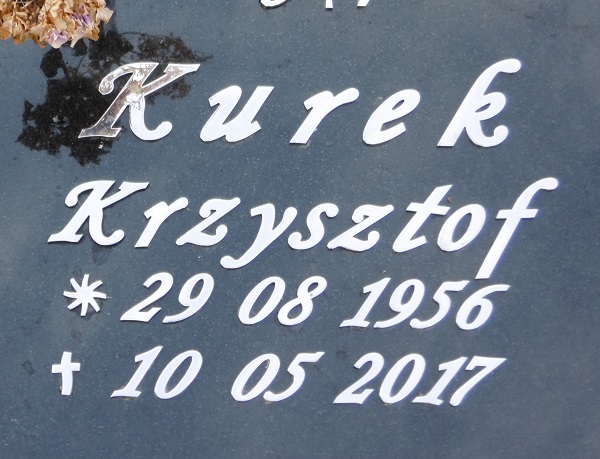 Kurek
Krzysztof
* 29 08 1956
† 10 05 2017